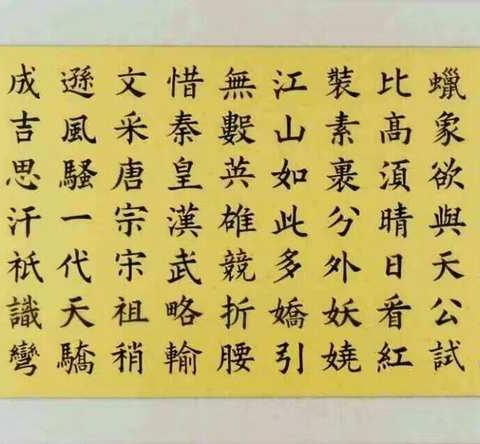 蠟象欲與天公試
比髙湏晴日看紅
裝素裹分外妖嬈
江山如此多嬌引
無數英雄競折腰
惜秦皇漢武略輸
文采唐宗宋祖稍
遜風騷一代天驕
成吉思汗祇識彎